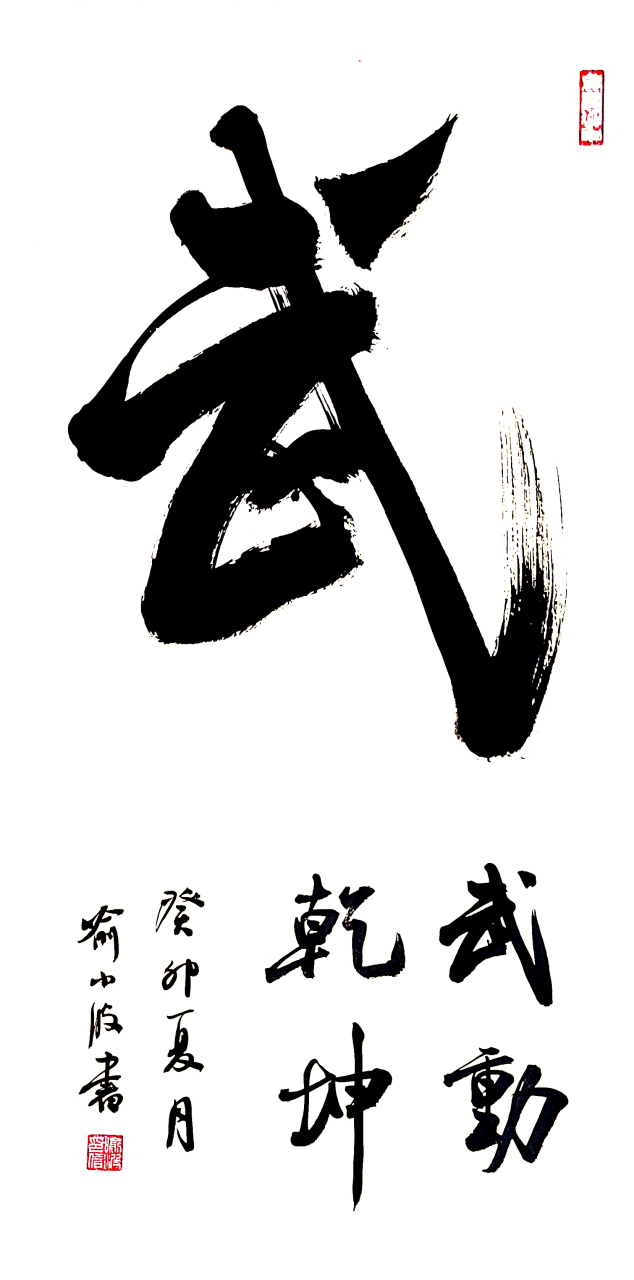 武
武動
乾坤
癸卯夏月
喻小波書